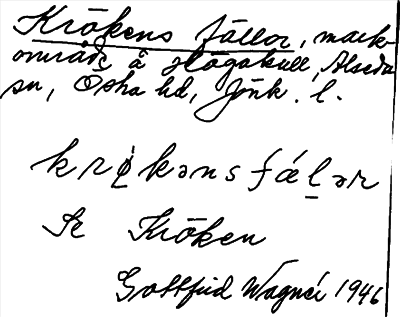 Krökens fällor, mark-
område å Högakull, Alseda
sn, Östra hd, Jönk. l.
krø̀kənsfǽl̲ər
Se Kröken
Gottfrid Wagnér 1946